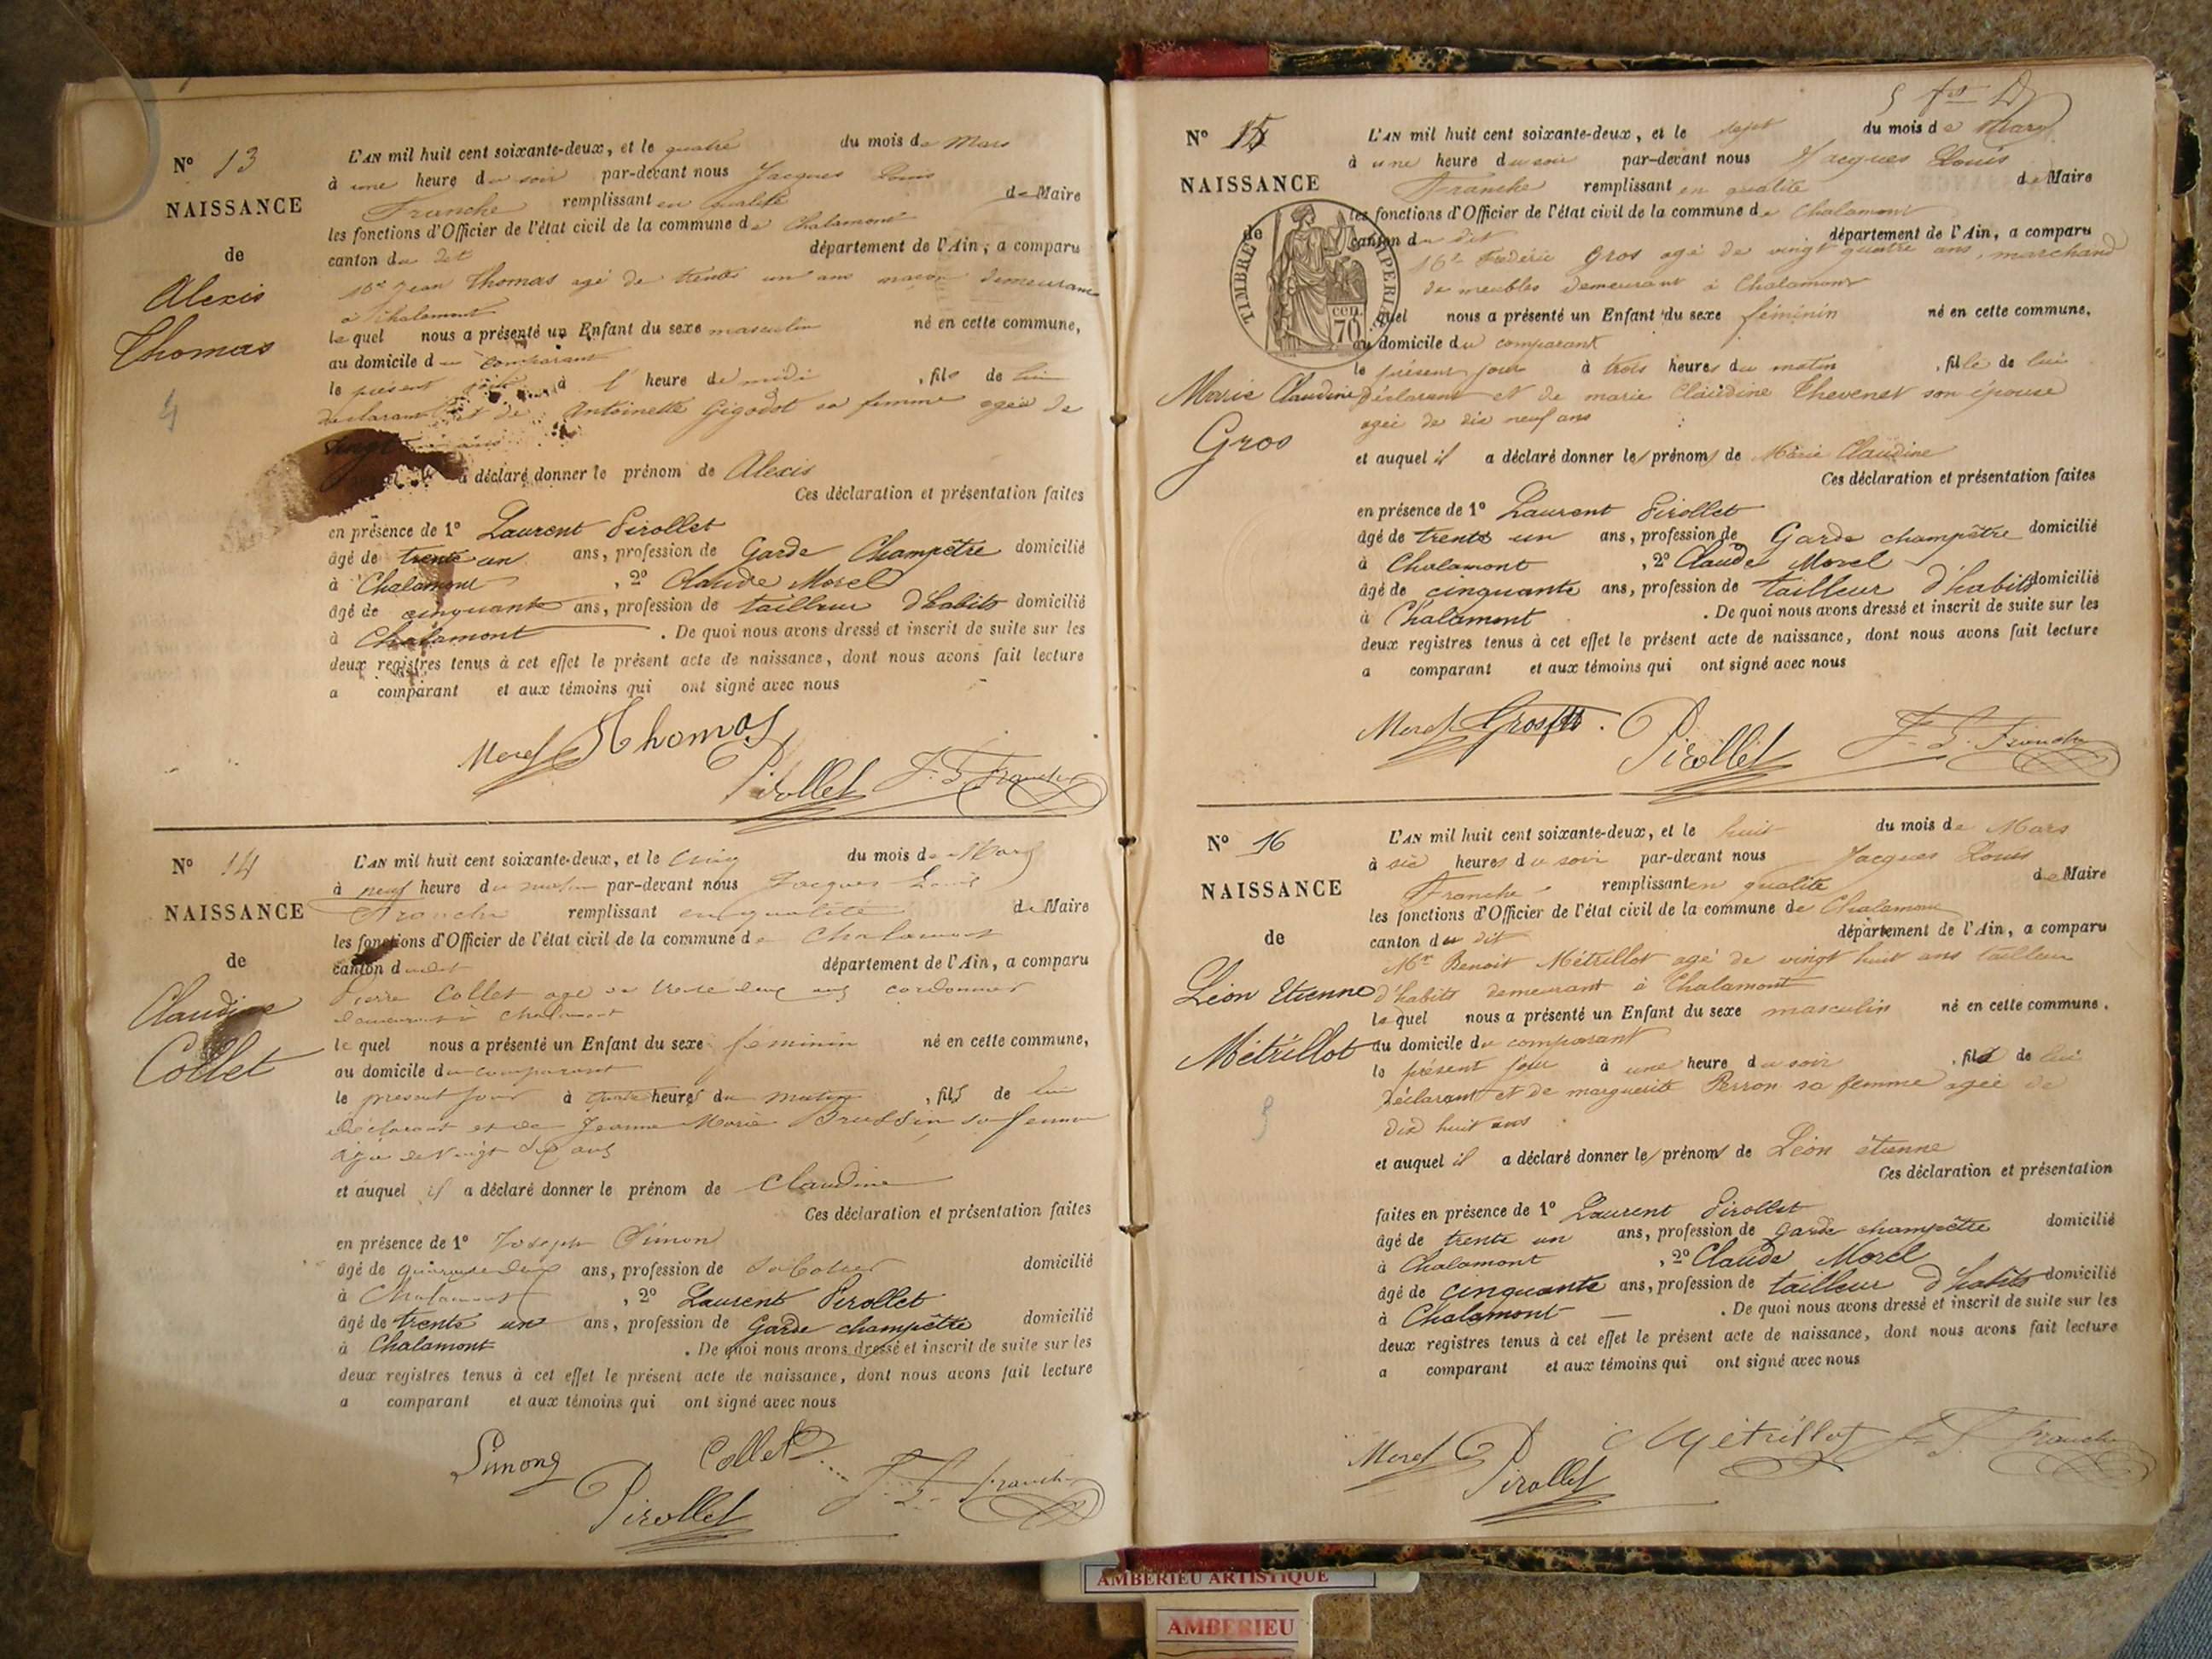 N° 13
NAISSANCE
de
Alexis
Thomas
4
L'AN mil huit cent soixante-deux, et le quatre du mois de Mars
à une heure du soir par-devant nous Jacques Louis
Franche remplissant en qualité de Maire
les fonctions d'Officier de l'état civil de la commune de Chalamont
canton du dit département de l'Ain, a comparu
Mr Jean Thomas agé de trente un ans maçon demeurant
à Chalamont
lequel nous a présenté un Enfant du sexe masculin né en cette commune,
au domicile du comparant
le présent jour à l' heure de midi , fils de lui
déclarant et de Antoinette Gigodot sa femme agée de
vingt ans
a déclaré donner le prénom de Alexis
Ces déclaration et présentation faites
en présence de 1° Laurent Pirollet
âgé de trente un ans, profession de Garde Champêtre domicilié
à Chalamont , 2° Claude Morel
âgé de cinquante ans, profession de tailleur d'habits domicilié
à Chalamont . De quoi nous avons dressé et inscrit de suite sur les
deux registres tenus à cet effet le présent acte de naissance, dont nous avons fait lecture
a comparant et aux témoins qui ont signé avec nous
Morel Thomas
Pirollet J. L. Franche
N° 14
NAISSANCE
de
Claudine
Collet
L'AN mil huit cent soixante-deux, et le cinq du mois de Mars
à neuf heure du matin par-devant nous Jacques Louis
Franche remplissant en qualité de Maire
les fonctions d'Officier de l'état civil de la commune de Chalamont
canton dudit département de l'Ain, a comparu
Pierre Collet agé de trente deux ans cordonnier
demeurant à Chalamont
le quel nous a présenté un Enfant du sexe féminin né en cette commune,
au domicile du comparant
le présent jour à heures du matin , fils de lui
déclarant et de Jeanne Marie Brussin sa femme
agée de vingt ans
et auquel il a déclaré donner le prénom de Claudine
Ces déclaration et présentation faites
en présence de 1° Joseph Simon
âgé de quarante deux ans, profession de domicilié
à Chalamont , 2° Laurent Pirollet
âgé de trente un ans, profession de Garde champêtre domicilié
à Chalamont . De quoi nous avons dressé et inscrit de suite sur les
deux registres tenus à cet effet le présent acte de naissance, dont nous avons fait lecture
a comparant et aux témoins qui ont signé avec nous
Simon Collet
Pirollet J. L. Franche
N° 15
NAISSANCE
de
TIMBRE IMPERIAL
70 cen.
Marie Claudine
Gros
L'AN mil huit cent soixante-deux, et le sept du mois de Mars
à une heure du soir par-devant nous Jacques Louis
Franche remplissant en qualité de Maire
les fonctions d'Officier de l'état civil de la commune de Chalamont
canton du dit département de l'Ain, a comparu
Mr Frédéric Gros agé de vingt quatre ans, marchand
de meubles demeurant à Chalamont
quel nous a présenté un Enfant du sexe féminin né en cette commune,
au domicile du comparant
le présent jour à trois heures du matin , fille de lui
déclarant et de marie Claudine Thevenet son épouse
agée de dix neuf ans
et auquel il a déclaré donner les prénoms de Marie Claudine
Ces déclaration et présentation faites
en présence de 1° Laurent Pirollet
âgé de trente un ans, profession de Garde champêtre domicilié
à Chalamont , 2° Claude Morel
âgé de cinquante ans, profession de tailleur d'habits domicilié
à Chalamont . De quoi nous avons dressé et inscrit de suite sur les
deux registres tenus à cet effet le présent acte de naissance, dont nous avons fait lecture
a comparant et aux témoins qui ont signé avec nous
Morel Gros Pirollet J. L. Franche
N° 16
NAISSANCE
de
Léon Etienne
Métrillot
L'AN mil huit cent soixante-deux, et le huit du mois de Mars
à six heures du soir par-devant nous Jacques Louis
Franche remplissant en qualité de Maire
les fonctions d'Officier de l'état civil de la commune de Chalamont
canton du dit département de l'Ain, a comparu
Mr Benoit Métrillot agé de vingt huit ans tailleur
d'habits demeurant à Chalamont
le quel nous a présenté un Enfant du sexe masculin né en cette commune,
au domicile du comparant
le présent jour à une heure du soir , fils de lui
déclarant et de marguerite Perron sa femme agée de
dix huit ans
et auquel il a déclaré donner les prénoms de Léon étienne
Ces déclaration et présentation
faites en présence de 1° Laurent Pirollet
âgé de trente un ans, profession de garde champêtre domicilié
à Chalamont , 2° Claude Morel
âgé de cinquante ans, profession de tailleur d'habits domicilié
à Chalamont . De quoi nous avons dressé et inscrit de suite sur les
deux registres tenus à cet effet le présent acte de naissance, dont nous avons fait lecture
a comparant et aux témoins qui ont signé avec nous
Morel Pirollet Métrillot J. L. Franche
AMBERIEU ARTISTIQUE
AMBERIEU